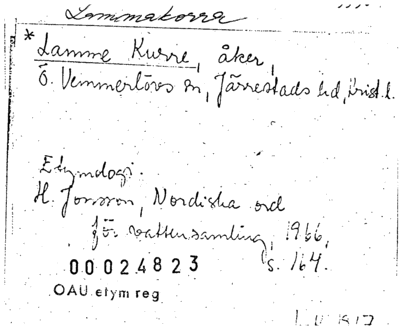 Lammakorra
* Lamme Kurre, åker,
Ö. Vemmerlövs sn, Järrestads hd, Krist. l.
Etymologi.
H. Jonsson, Nordiska ord
för vattensamling, 1966,
s. 164.
00024823
OAU etym reg